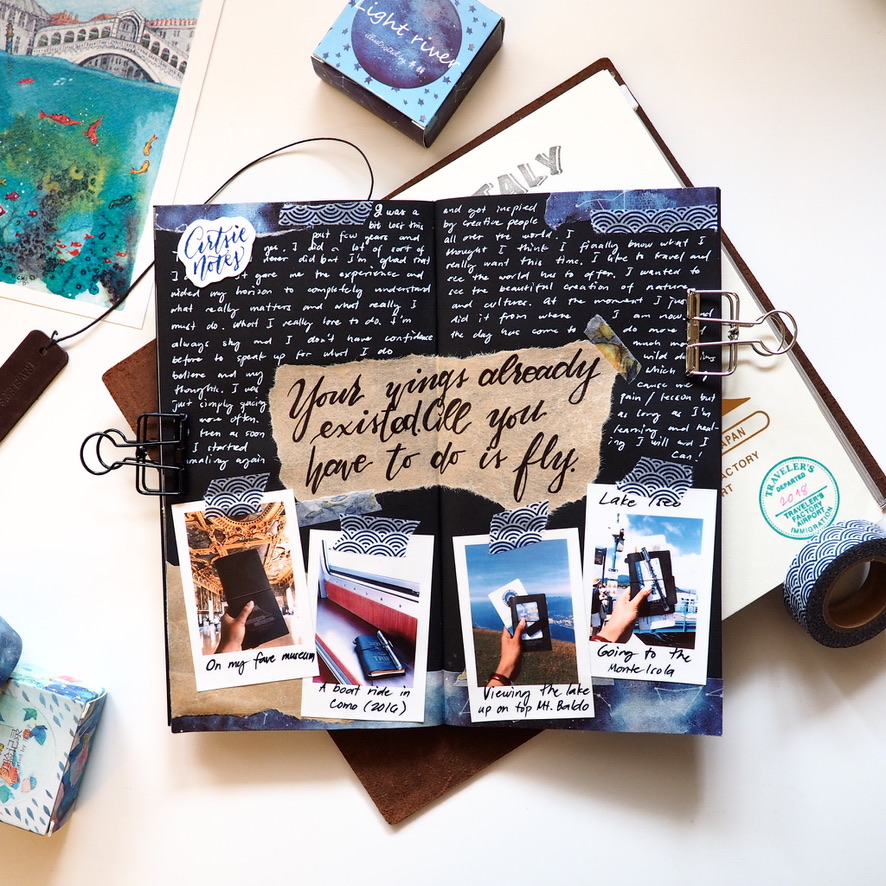 Light river
illustrated by
ITALY
Cirtsie
notes
I was a
bit lost this
past few years and
yes. I did a lot of sort of
never did but I'm glad that
it gave me the experience and
wided my horizon to completely understand
what really matters and what really I
must do. What I really love to do. I'm
always shy and I don't have confidence
before to speak up for what I do
believe and my
thoughts. I was
just simply
more often.
then as soon
I started
journaling again
and got inspired
by creative people
all over the world. I
thought I think I finally know what I
really want this time. I like to travel and
see the world has to offer. I wanted to
see the beautiful creation of nature
and cultures. At the moment I just
did it from where I am now. And
the day has come to do more
wild
which
cause me
pain / lesson but
as long as I'm
learning and heal-
ing I will and I
can!
Your wings already
existed. All you
have to do is fly.
On my fave museum
A boat ride in
Como (2016)
Viewing the lake
up on top Mt. Baldo
Lake Iseo
Going to the
Monte Isola
JAPAN
FACTORY
TRAVELER'S
DEPARTED
2018
TRAVELER'S
FACTORY
AIRPORT
IMMIGRATION